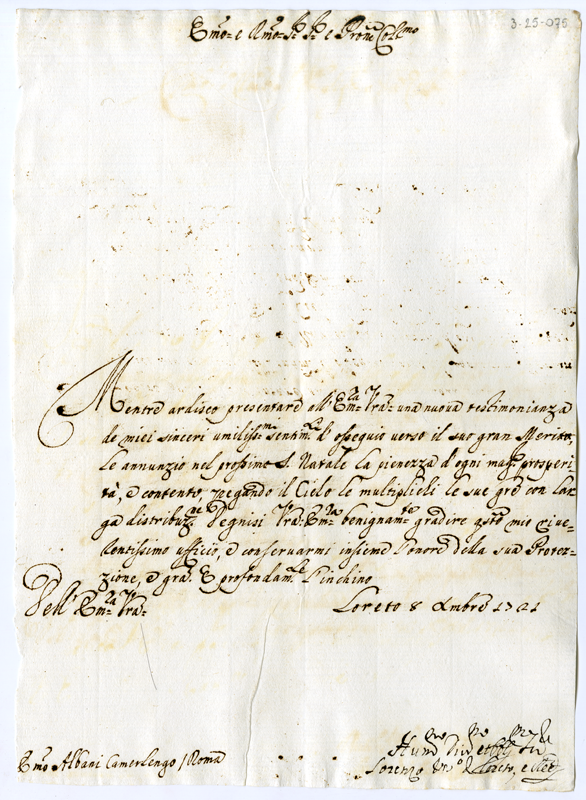 3-25-075
Em̃o e Rm̃o Sr̃ Sr̃ e Pron̄e Col̃mo
Mentre ardisco presentare all' Em̃za Vr̃a una nuova testimonianza
de miei sinceri umilissm̃i sentim̃ti d'ossequio verso il suo gran Merito,
le annunzio nel prossimo S. Natale la pienezza d'ogni magr̃ prosperi
tà, e contento, pregando il Cielo le multiplichi le sue gr̃e con lar
ga distribuz̃ne Degnisi Vr̃a Em̃za benignam̃te gradire q̃sto mio
lentissimo ufficio, e conservarmi insieme l'onore della sua Protez-
zione, e gr̃a. E profondam̃te l'inchino
Dell' Em̃za Vr̃a
Loreto 8 Xmbre 1721
Em̃o Albani Camerlengo / Roma
Hum̃o
Lorenzo di Loreto, e